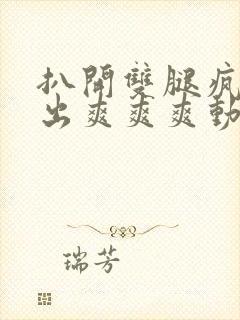 扒開雙腿瘋
出爽爽爽動
瑞芳